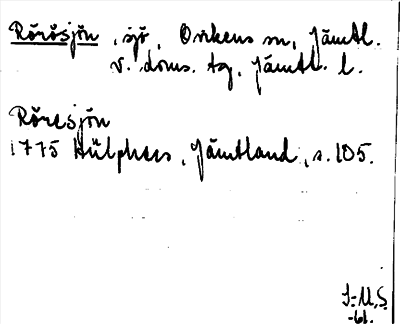 Rörösjön, sjö, Ovikens sn, Jämtl.
v. doms. tg, Jämtl. l.
Röresjön
1775 Hülphers, Jämtland, s. 105.
I.-U.S.
-61.